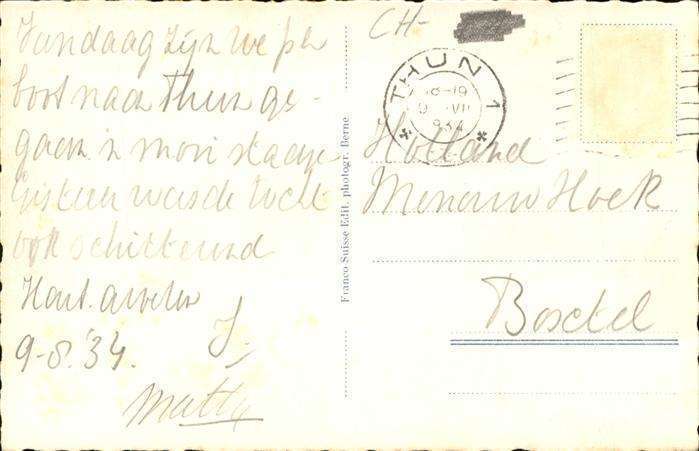 Vandaag zijn we per
boot naar Thun ge-
gaan 'n mooi stadje
Gisteren was de tocht
ook schitterend
Hart.
9-8.'34.
CH-
THUN 1
18-19
934
Holland
Hoek
Boxtel
Franco Suisse Edit. photogr. Berne